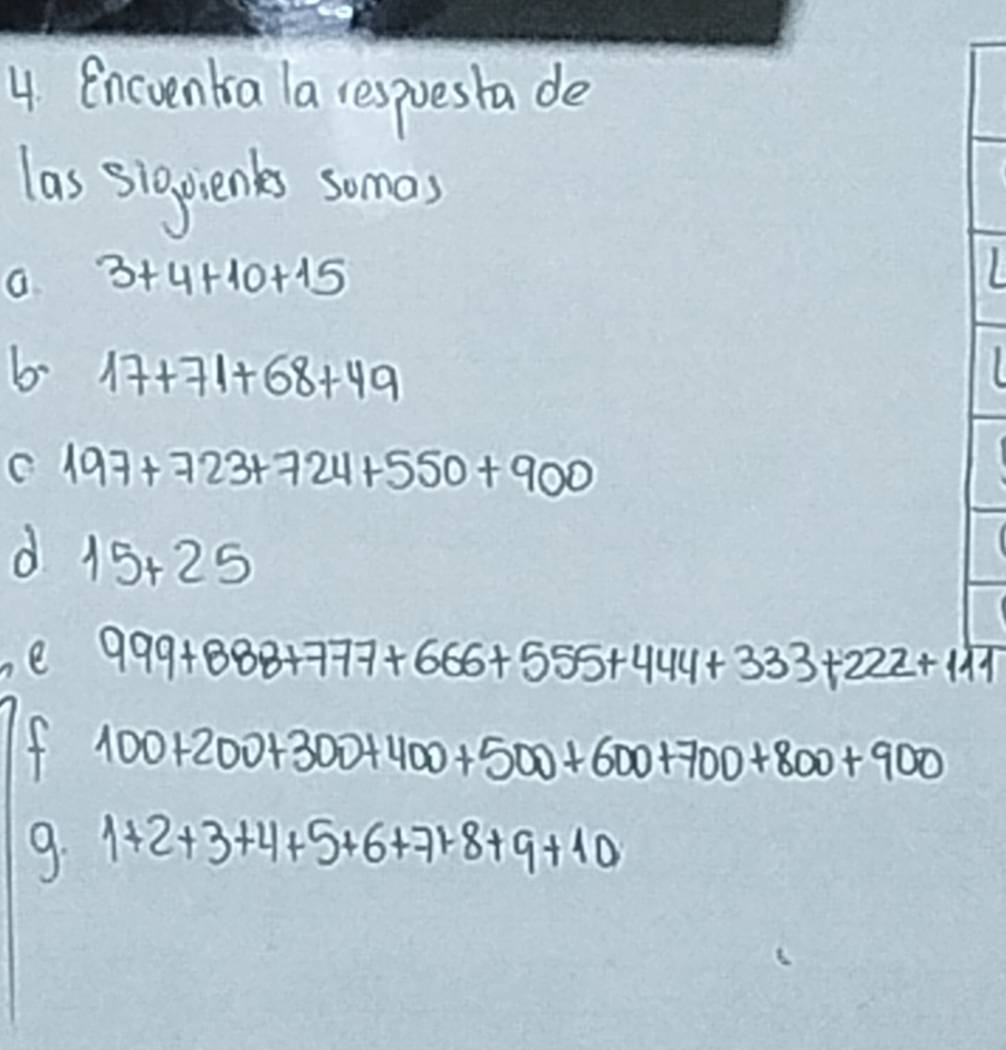 4. Encuentra la respuesta de
las siguientes sumas
a. 3+4+10+15
b. 17+71+68+49
c 197+723+724+550+900
d. 15+25
e 999+888+777+666+555+444+333+222+111
f 100+200+300+400+500+600+700+800+900
g. 1+2+3+4+5+6+7+8+9+10